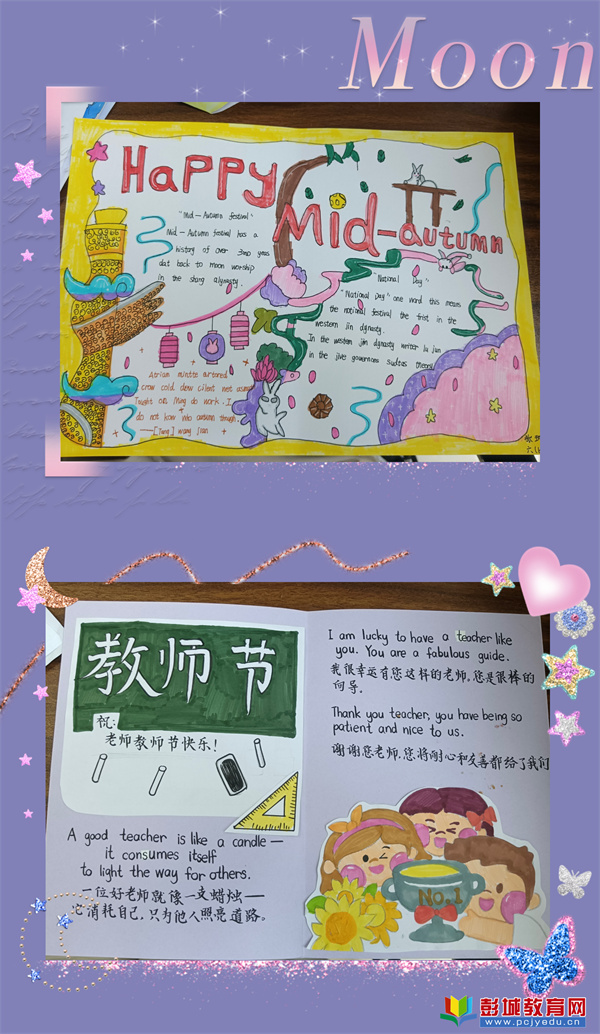 Moon
HaPPY
Mid-autumn
"Mid-Autumn festival"
Mid-Autumn festival has a
history of over 3000 years
dat back to moon worship
in the shang
"National Day"
"National Day" one word this means
the national festival the frist in the
western jin dynasty.
In the western jin dynasty writer lu jun
in the five governors
crow cold dew silent wet
do not know who autumn
[Tang] wang Jian
教师节
祝:
老师教师节快乐!
A good teacher is like a candle—
it consumes itself
to light the way for others.
一位好老师就像一支蜡烛—
它消耗自己,只为他人照亮道路。
I am lucky to have a teacher like
you. You are a fabulous guide.
我很幸运有您这样的老师,您是很棒的
向导.
Thank you teacher, you have being so
patient and nice to us.
谢谢您老师,您将耐心和友善都给了我们
No.1
彭城教育网
www.pcjyedu.cn